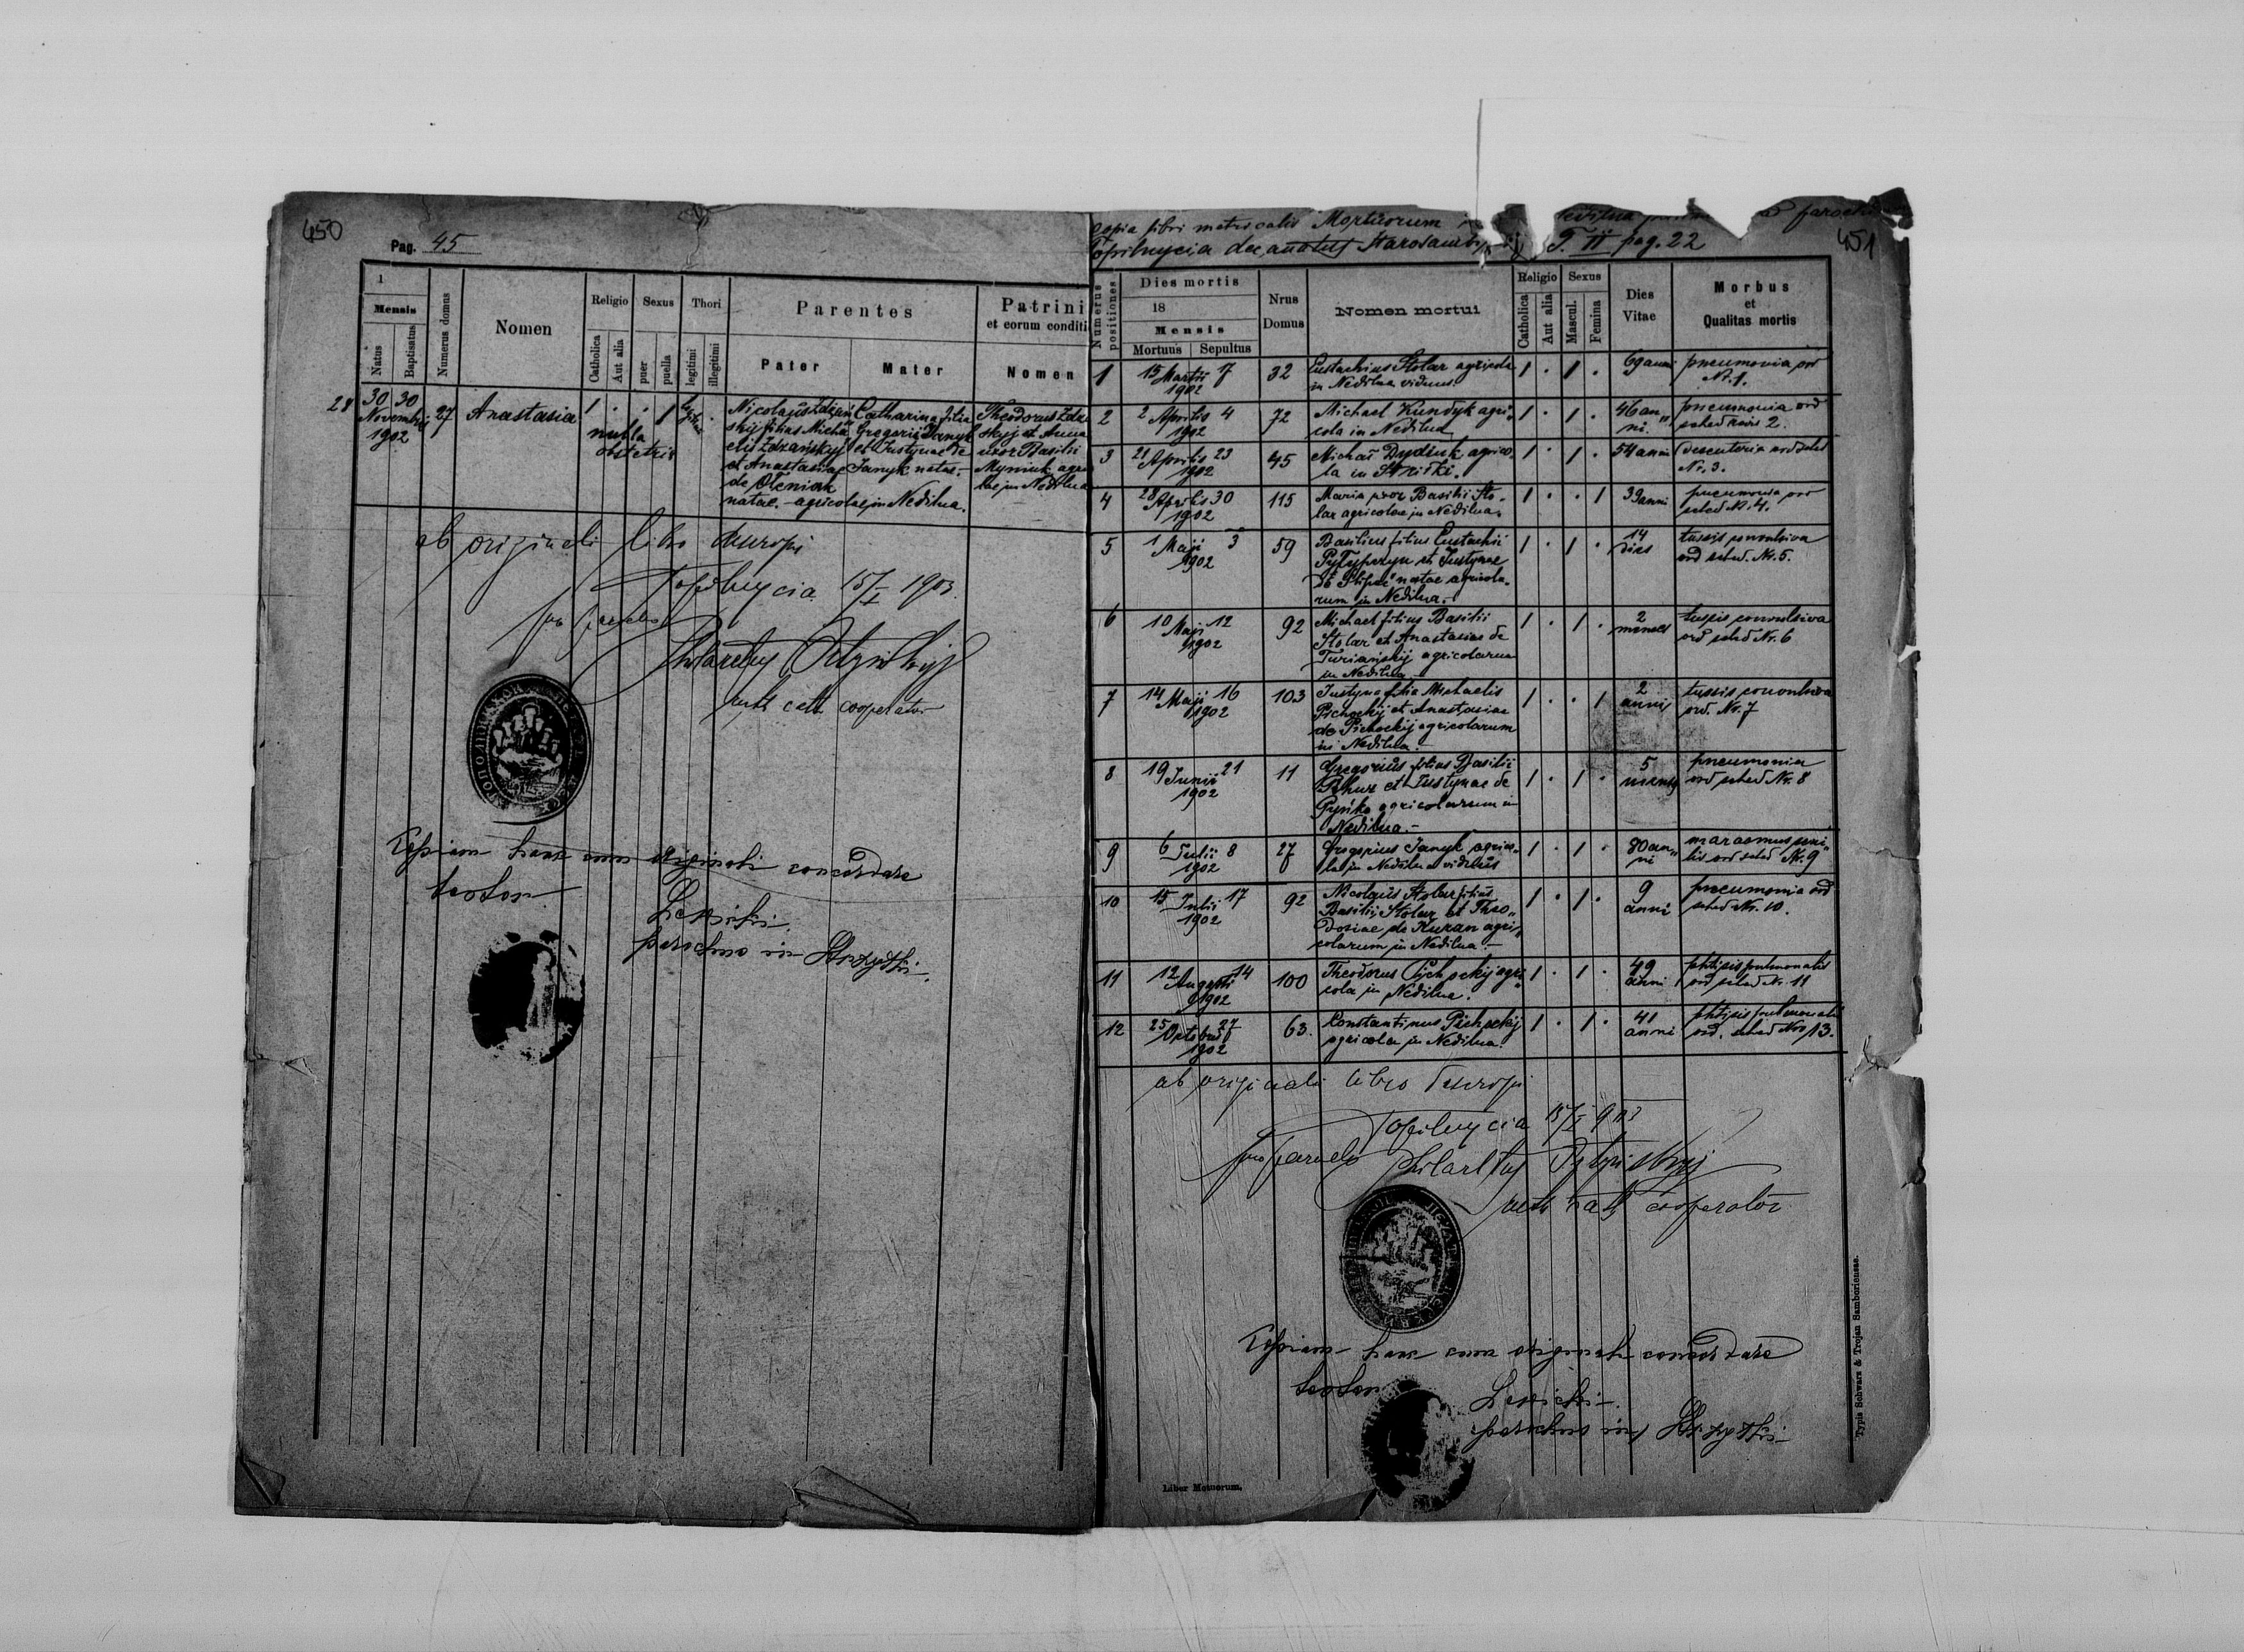 450
Pag. 45
1
Mensis
Natus
Baptisatus
Numerus domus
Nomen
Religio
Catholica
Aut alia
Sexus
puer
puella
Thori
legitimi
illegitimi
Parentes
Pater
Mater
Patrini
et eorum conditi
Nomen
28
30 30
Novembris
1902
27
Anastasia
1 . . 1
nulla
obstetrix
Nicolaus Zdzań
skyj filius Micha
elis Zdzańskyj
et Anastasiae
de Oleniak
natae. - agricolae in Nedilna.
Catharina filia
Gregorii Janyk
et Justynae de
Janyk natae.-
Theodorus Zdza
skyj et Anna
uxor Basilii
Myniuk agri
lae in Nedilna
ab originali libro descripsi
Topolnycia 15/I 1903.
pro parocho
ruth cath cooperator
Copiam hanc cum originali concordare
testor
Lewicki
parochus in Strzyłki
451
copia libri metricalis Mortuorum
Topilnycia decanatus Starosambor
T. II pag. 22
Numerus
positiones
Dies mortis
18
Mensis
Mortuus
Sepultus
Nrus
Domus
Nomen mortui
Religio
Catholica
Aut alia
Sexus
Mascul.
Femina
Dies
Vitae
Morbus
et
Qualitas mortis
1
15 Martii 17
1902
32
Eustachius Stolar agricola
in Nedilna viduus
1 . 1 .
69 anni
pneumonia ord
Nr. 1.
2
2 Aprilis 4
1902
72
Michael Kundyk agri„
cola in Nedilna
1 . 1 .
46 an„
ni.
pneumonia ord
sched 2.
3
21 Aprilis 23
1902
45
Michaś Dydiuk agrico„
la in Striłki.
1 . 1 .
54 anni
desenteria ord sched
Nr. 3.
4
28 Aprilis 30
1902
115
Maria uxor Basilii Sto„
lar agricolae in Nedilna.
1 . . 1
39 anni
pneumonia ord
sched Nr. 4.
5
1 Maji 3
1902
59
Basilius filius Eustachii
et Justynae
de natae agricola„
rum in Nedilna.
1 . 1 .
14
dies
tussis convulsiva
ord sched. Nr. 5.
6
10 Maji 12
1902
92
Michael filius Basilii
Stolar et Anastasiae de
Turiańskij agricolarum
in Nedilna
1 . 1 .
2
menses
tussis convulsiva
ord sched Nr. 6
7
14 Maji 16
1902
103
Justyna filia Michaelis
Pichockij et Anastasiae
de Pichockij agricolarum
in Nedilna.-
1 . . 1
2
anni
tussis convulsiva
ord. Nr. 7
8
19 Junii 21
1902
11
Gregorius filius Basilii
et Justynae de
agricolarum in
Nedilna.-
1 . 1 .
5
menses
pneumonia
ord sched Nr. 8
9
6 Julii 8
1902
27
Gregorius Janyk agrico„
la in Nedilna viduus
1 . 1 .
80 an„
ni
marasmus seni„
lis ord sched Nr. 9
10
15 Julii 17
1902
92
Nicolaus Stolar filius
Basilii Stolar et Theo„
dosiae de Kuzan agri„
colarum in Nedilna.-
1 . 1 .
9
anni
pneumonia ord
sched Nr. 10.
11
12 Augusti 14
1902
100
Theodorus Pichockij agri„
cola in Nedilna.
1 . 1 .
49
anni
phtisis pulmonalis
ord sched Nr. 11
12
25 Octobris 27
1902
63.
Constantinus Pichockij
agricola in Nedilna.
1 . 1 .
41
anni
phtisis pulmonalis
ord. sched Nro 13.
ab originali libro descripsi
Topilnycia 15/I 903
pro parocho
ruth cath cooperator
Copiam hanc cum originali concordare
testor
Lewicki
parochus in Strzyłki
Liber Motuorum.
Typis Schwarz & Trojan Samboriensse.